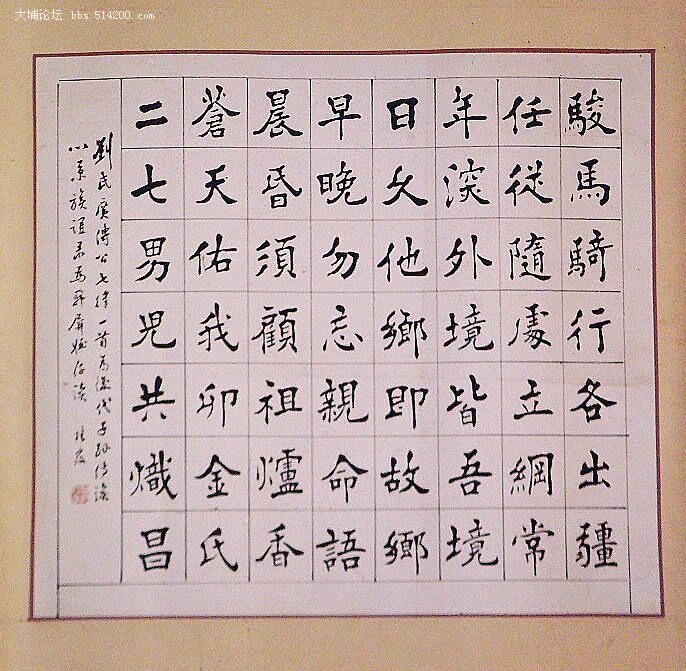 大埔论坛 bbs.514200.com
駿馬騎行各出疆
任從隨處立綱常
年深外境皆吾境
日久他鄉即故鄉
早晚勿忘親命語
晨昏須顧祖爐香
蒼天佑我卯金氏
二七男児共熾昌
劉氏廣傳公七律一首為後代子孫傳誦
族誼